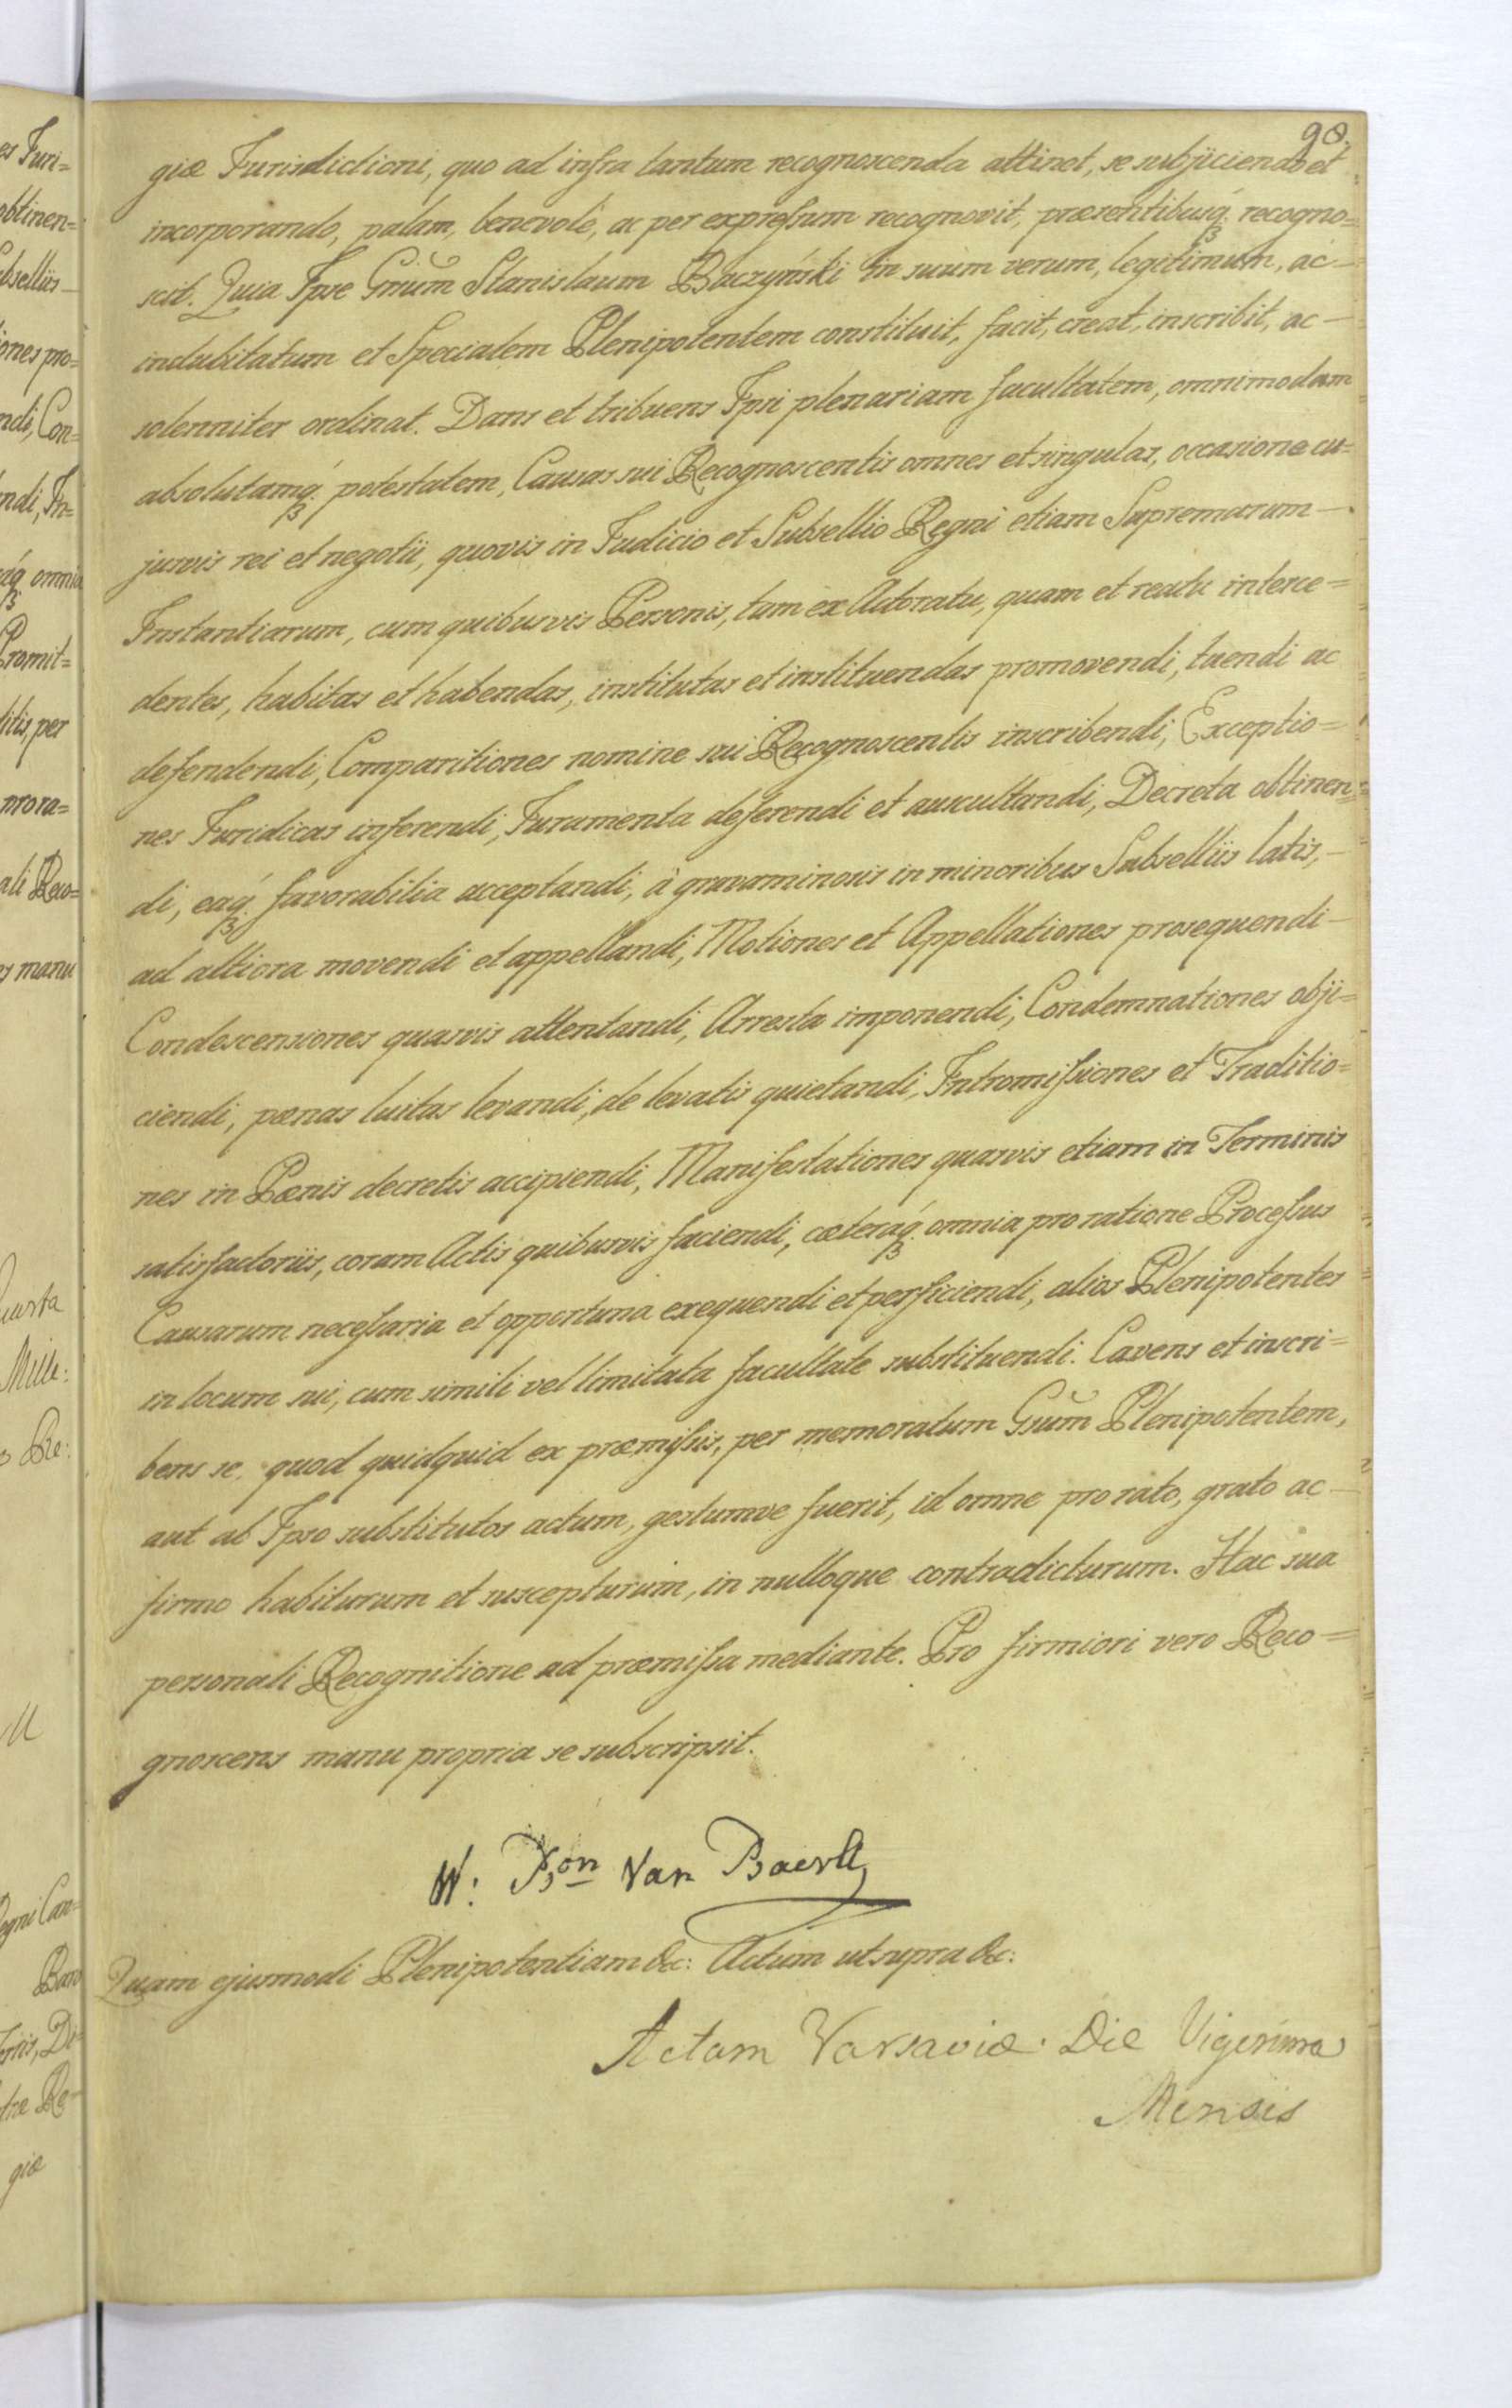 98.
giæ Jurisdictioni, quo ad infra tantum recognoscenda attinet, se subjiciendo et
incorporando, palam, benevolè, ac per expreſsum recognovit, præsentibusq́ꝫ recogno=
scit. Quia Ipse Gnūm Stanislaum Baczyński in suum verum, legitimum, ac—
indubitatum et Specialem Plenipotentem constituit, facit, creat, inscribit, ac—
solenniter ordinat. Dans et tribuens Ipsi plenariam facultatem, omnimodam
absolutamq́ꝫ potestatem, Causas sui Recognoscentis omnes et singulas, occasione cu=
jusvis rei et negotii, quovis in Judicio et Subsellio Regni etiam Supremarum—
Instantiarum, cum quibusvis Personis, tam ex Actoratu, quam et reatu interce=
dentes, habitas et habendas, institutas et instituendas promovendi, tuendi ac
defendendi, Comparitiones nomine sui Recognoscentis inscribendi, Exceptio=
nes Juridicas inferendi, Juramenta deferendi et auscultandi, Decreta obtinen=
di, eaq́ꝫ favorabilia acceptandi, à gravaminosis in minoribus Subselliis latis,—
ad altiora movendi et appellandi, Motiones et Appellationes prosequendi—
Condescensiones quasvis attentandi, Arresta imponendi, Condemnationes obji=
ciendi, pœnas luitas levandi, de levatis quietandi, Intromiſsiones et Traditio=
nes in Bonis decretis accipiendi, Manifestationes quasvis etiam in Terminis
satisfactoriis, coram Actis quibusvis faciendi, cæteraq́ꝫ omnia pro ratione Proceſsus
Causarum neceſsaria et opportuna exequendi et perficiendi, alios Plenipotentes
in locum sui, cum simili vel limitata facultate substituendi. Cavens et inscri=
bens se, quod quidquid ex præmiſsis, per memoratum Gnūm Plenipotentem,
aut ab Ipso substitutos actum, gestumve fuerit, id omne pro rato, grato ac—
firmo habiturum et suscepturum, in nulloque contradicturum. Hac sua
personali Recognitione ad præmiſsa mediante. Pro firmiori vero Reco=
gnoscens manu propria se subscripsit.
W: Bon Van
Quam ejusmodi Plenipotentiam &c: Actum ut supra &c:
Actum Varsaviæ. Die Vigesima
Mensis